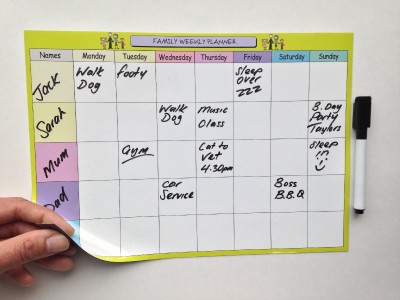 FAMILY WEEKLY PLANNER
Names Monday Tuesday Wednesday Thursday Friday Saturday Sunday
Jack
Walk
Dog
footy
Sleep
over
zzz
Sarah
Walk
Dog
Music
Class
B.Day
Party
Taylors
Mum
Gym
Cat to
Vet
4.30pm
Sleep
Dad
Car
Service
Boss
B.B.Q